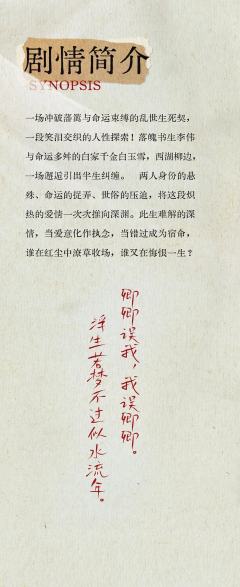 剧情简介
SYNOPSIS
一场冲破藩篱与命运束缚的乱世生死契，
一段笑泪交织的人性探索！落魄书生李伟
与命运多舛的白家千金白玉雪，西湖柳边，
一场邂逅引出半生纠缠。 两人身份的悬
殊、命运的捉弄、世俗的压迫，将这段炽
热的爱情一次次推向深渊。此生难解的深
情，当爱意化作执念，当错过成为宿命，
谁在红尘中潦草收场，谁又在悔恨一生？
卿卿误我，我误卿卿。
浮生若梦不过似水流年。